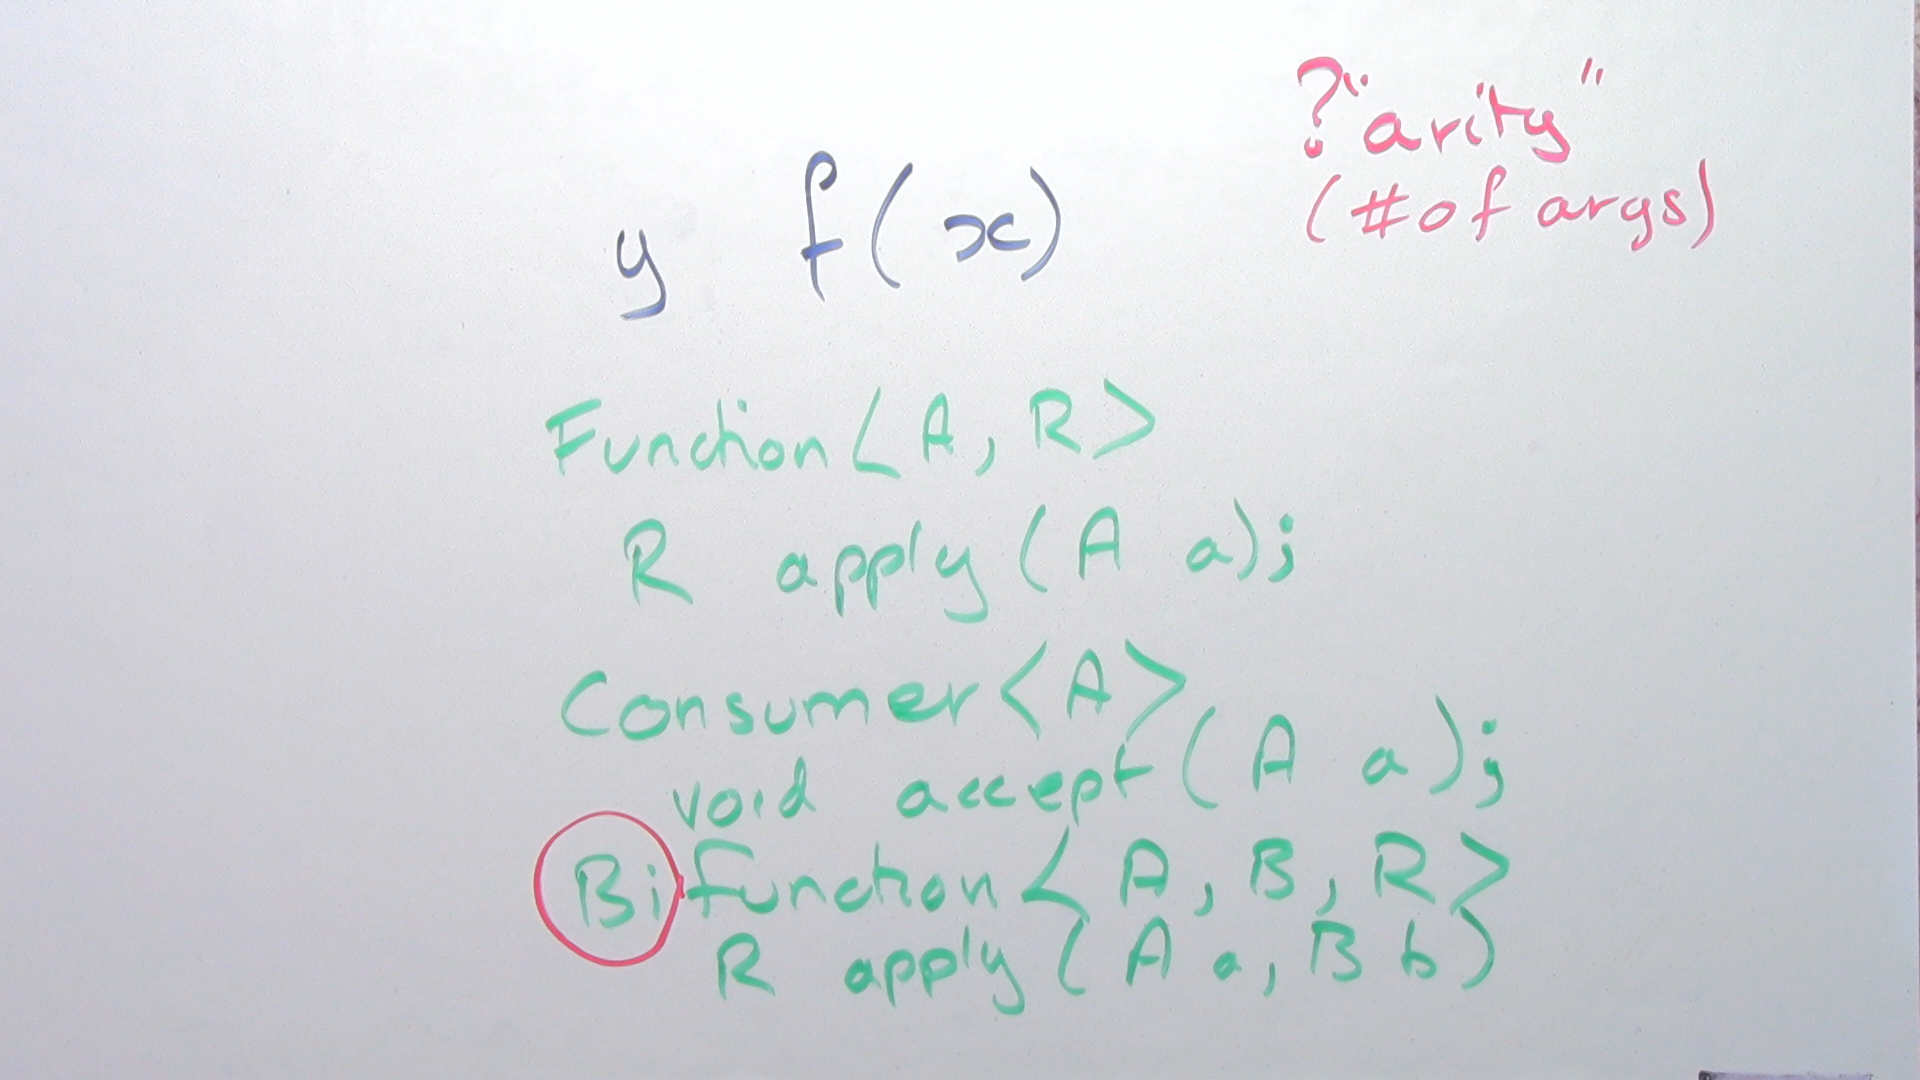 ?"arity"
(#of args)
y f(x)
Function<A, R>
R apply(A a);
Consumer<A>
void accept(A a);
Bifunction<A, B, R>
R apply(A a, B b)